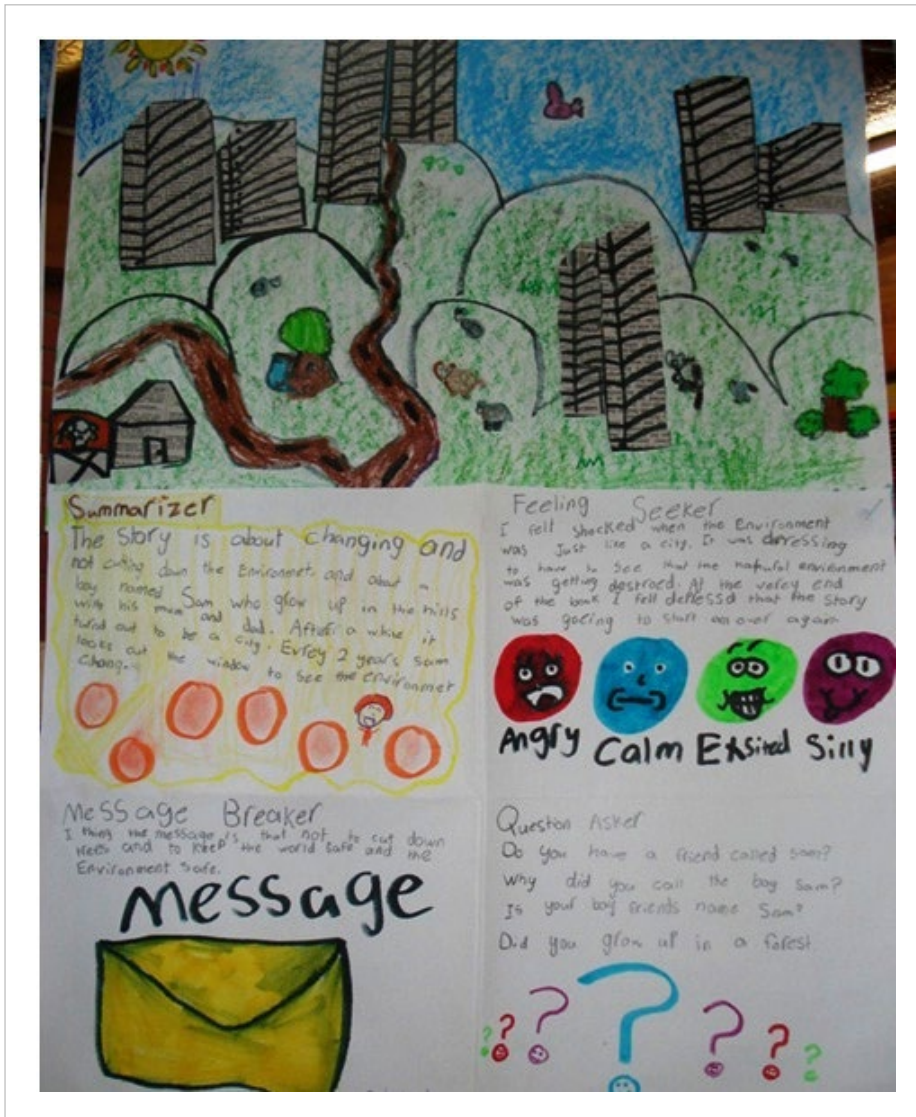 Summarizer
The Story is about changing and
not cuting down the Environmet. and about a
boy named Sam who glow up in the hills
with his mum and dad. After a while it
turnd out to be a city. Evrey 2 years sam
looks out the window to see the enviromet
Change.
Feeling Seeker
I felt shocked when the Environment
was Just like a city. It was deressing
to have to see that the natural environment
was getting destroed. At the verey end
of the book I fell deressd that the story
was goeing to start an over again
Angry Calm Exsited Silly
Message Breaker
I thing the message is that not to cut down
trees and to keep the world safe and the
Environment safe.
Message
Question Asker
Do you have a friend called sam?
Why did you call the boy sam?
Is your boy friends name Sam?
Did you grow up in a forest
? ? ? ? ? ? ?